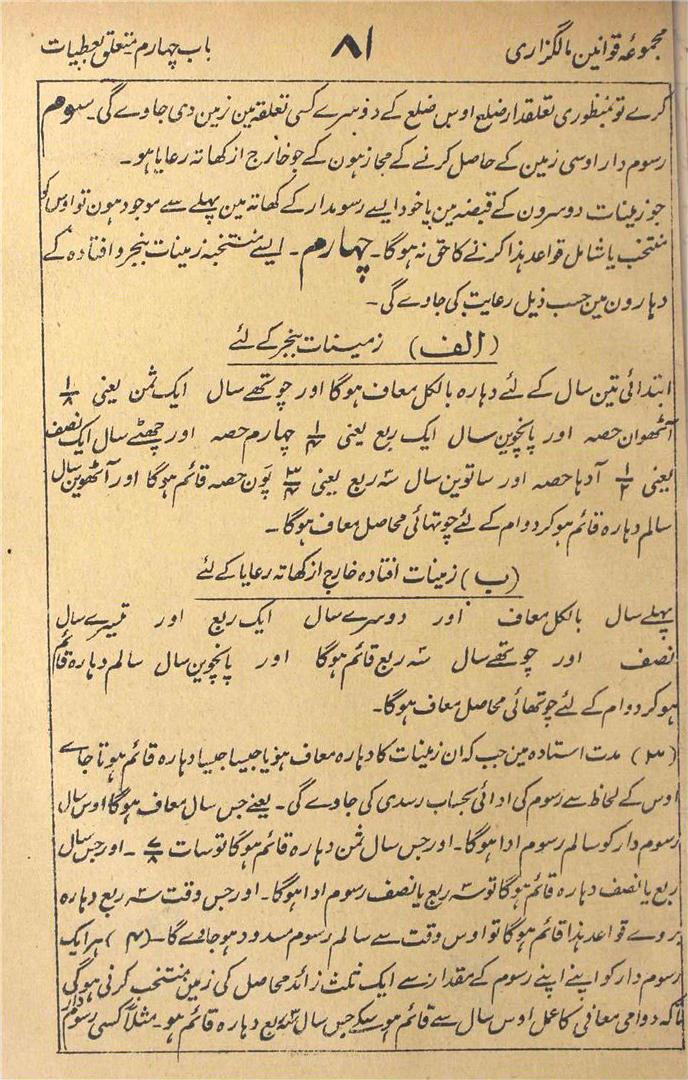 مجموعہ قوانین مالگزاری ۸۱ باب چہارم۔ متعلق بعطیات
کرے تو بمنظوری تعلقدار ضلع اوس ضلع کے دوسرے کسی تعلقہ مین زمین دی جاوے گی۔ سوم
رسوم دار اوسی زمین کے حاصل کرنے کے مجاز ہون گے جو خارج از کھاتہ رعایا ہو۔
جو زمینات دوسرون کے قبضہ مین یا خود ایسے رسومدار کے کھاتہ مین پہلے سے موجود ہون تو اوس کو
منتخب یا شامل قواعد ہذا کرنے کا حق نہ ہوگا۔ چہارم۔ ایسے منتخبہ زمینات بنجر و افتادہ کے
دہارون مین حسب ذیل رعایت کی جاوے گی۔
(الف) زمینات بنجر کے لئے
ابتدائی تین سال کے لئے دہارہ بالکل معاف ہوگا اور چوتھے سال ایک ثمن یعنی ۱/۸
آٹھوان حصہ اور پانچوین سال ایک ربع یعنی ۱/۴ چہارم حصہ اور چھٹے سال ایک نصف
یعنی ۱/۲ آدہا حصہ اور ساتوین سال سہ ربع یعنی ۳/۴ پَون حصہ قائم ہوگا اور آٹھوین سال
سالم دہارہ قائم ہوکر دوام کے لئے چوتہائی محاصل معاف ہوگا۔
(ب) زمینات افتادہ خارج از کھاتہ رعایا کے لئے
پہلے سال بالکل معاف اور دوسرے سال ایک ربع اور تیسرے سال
نصف اور چوتھے سال سہ ربع قائم ہوگا اور پانچوین سال سالم دہارہ قائم
ہوکر دوام کے لئے چوتھائی محاصل معاف ہوگا۔
(۳) مدت استادہ مین جب کہ ان زمینات کا دہارہ معاف ہو یا جیسا جیسا دہارہ قائم ہوتا جاے
اوس کے لحاظ سے رسوم کی ادائی بحساب رسدی کی جاوے گی۔ یعنے جس سال معاف ہوگا اوس سال
رسوم دار کو سالم رسوم ادا ہوگا۔ اور جس سال ثمن دہارہ قائم ہوگا تو سات ۷/۸ ۔ اور جس سال
ربع یا نصف دہارہ قائم ہوگا تو سہ ربع یا نصف رسوم ادا ہوگا۔ اور جس وقت سہ ربع دہارہ
بروے قواعد ہذا قائم ہوگا تو اوس وقت سے سالم رسوم مسدود ہوجاوے گا۔ (۴) ہر ایک
رسوم دار کو اپنے اپنے رسوم کے مقدار سے ایک ثلث زائد محاصل کی زمین منتخب کرنی ہوگی
تاکہ دوامی معافی کا عمل اوس سال سے قائم ہوسکے جس سال سہ ربع دہارہ قائم ہو۔ مثلاً کسی رسوم دار